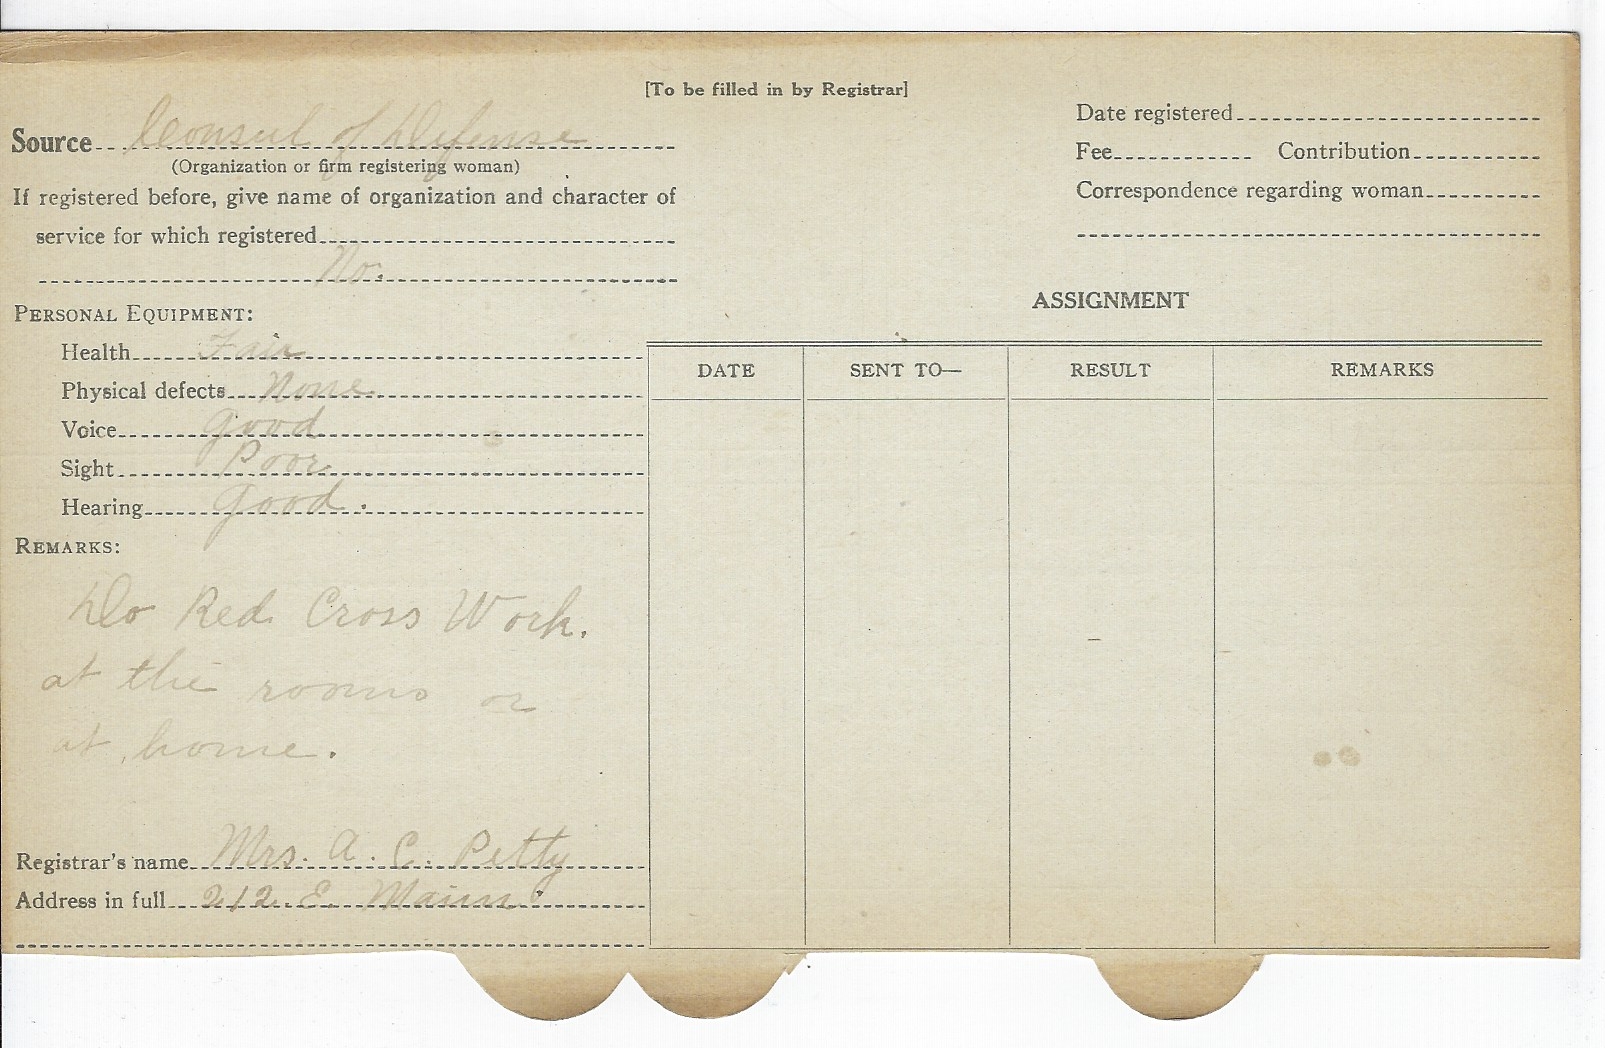 [To be filled in by Registrar]
Source Consul of Defense
(Organization or firm registering woman)
If registered before, give name of organization and character of
service for which registered
No.
PERSONAL EQUIPMENT:
Health Fair
Physical defects None
Voice good
Sight Poor
Hearing good.
REMARKS:
Do Red Cross Work.
at the rooms or
at home.
Registrar's name Mrs. A. C. Petty
Address in full 212. E. Main
Date registered
Fee Contribution
Correspondence regarding woman
ASSIGNMENT
DATE SENT TO— RESULT REMARKS